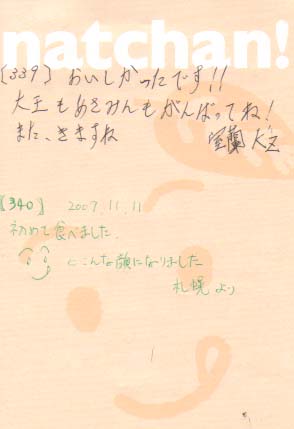 natchan!
[339] おいしかったです!!
大王もあきみんもがんばってね!
また、きますね 室蘭 K立
【340】 2007.11.11
初めて食べました。
とこんな顔になりました
札幌より